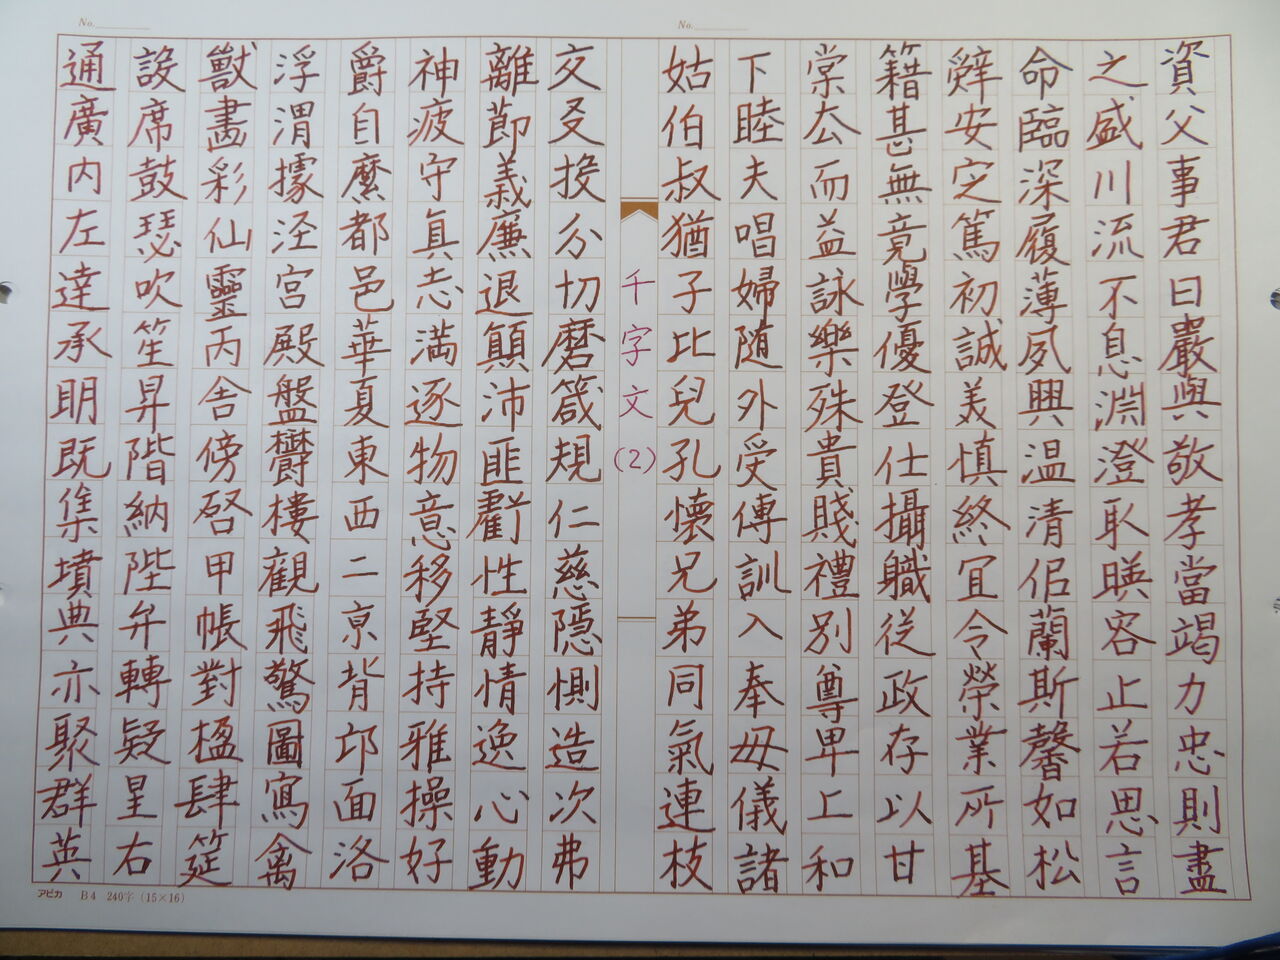 No.
No.
資父事君曰嚴與敬孝當竭力忠則盡
命臨深履薄夙興温清佀蘭斯馨如松
之盛川流不息淵澄取暎容止若思言
辤安定篤初誠美慎終冝令榮業所基
籍甚無竟學優登仕攝職従政存以甘
棠去而益詠樂殊貴賤禮別尊卑上和
下睦夫唱婦随外受傅訓入奉母儀諸
姑伯叔猶子比兒孔懐兄弟同氣連枝
千字文(2)
交友投分切磨箴規仁慈隠惻造次弗
離節義廉退顛沛匪虧性靜情逸心動
神疲守真志満逐物意移堅持雅操好
爵自縻都邑華夏東西二亰背邙面洛
浮渭據涇宮殿盤欝樓觀飛驚圖寫禽
獣畫彩仙靈丙舎傍啓甲帳對楹肆筵
設席鼓瑟吹笙昇階納陛弁轉疑星右
通廣内左達承明既集墳典亦聚群英
アピカ B4 240字(15×16)